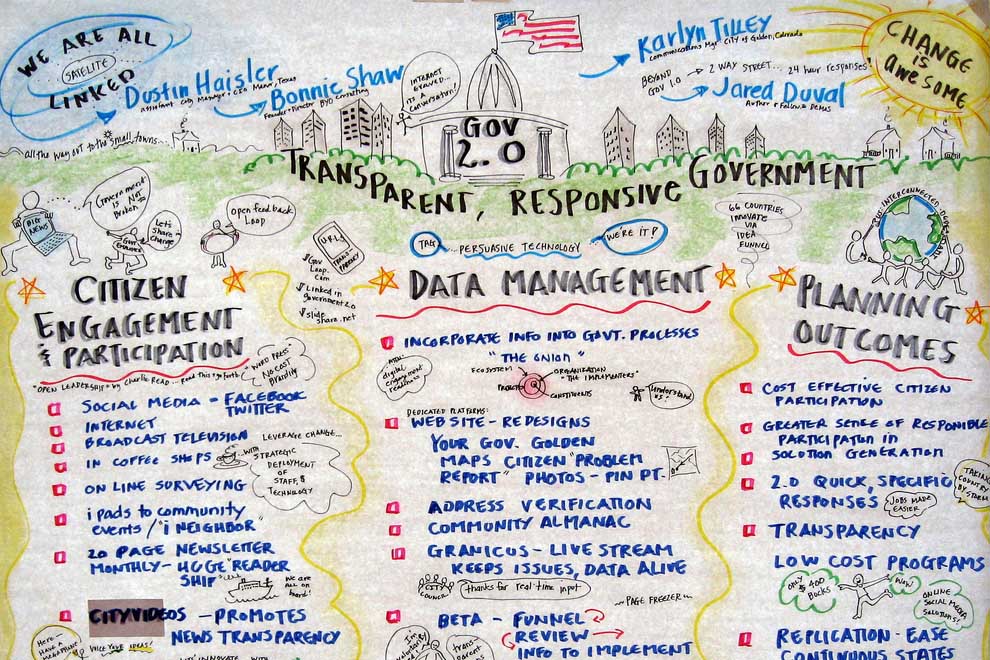 WE ARE ALL
SATELLITE
LINKED
Dustin Haisler
Assistant City Manager + CIO Manor, Texas
Bonnie Shaw
Founder + Director BYO Consulting
INTERNET
ERAVED...
ITS A
CONVERSATION!
Karlyn Tilley
Communications Mgr. City of Golden, Colorado
BEYOND
GOV 1.0 → 2 WAY STREET... 24 hour responses
Jared Duval
Author + Fellow @ Demos
CHANGE
is
awesome
all the way out to the small towns.....
GOV
2.0
TRANSPARENT, RESPONSIVE GOVERNMENT
BIG
NEWS
Government
is Not
Broken
Let's
Share
Change
open feedback
Loop
URLs
TRANS
PARENCY
Gov
Loop.
com
Linked in
government 2.0
slide
share.net
TAG
...PERSUASIVE TECHNOLOGY
WE'RE IT!
66 COUNTRIES
INNOVATE
VIA
IDEA
FUNNEL
INTERCONNECTED
CITIZEN
ENGAGEMENT
& PARTICIPATION
"OPEN LEADERSHIP" by Charlie READ... Read This + go forth
"WORD PRESS"
No COST
Branding
SOCIAL MEDIA - FACEBOOK
TWITTER
INTERNET
BROADCAST TELEVISION
IN COFFEE SHOPS
LEVERAGE CHANGE...
...WITH
STRATEGIC
DEPLOYMENT
OF
STAFF, $
TECHNOLOGY
ON LINE SURVEYING
i pads to community
events / "i NEIGHBOR"
20 PAGE NEWSLETTER
MONTHLY - HUGE "READER
SHIP"
we are
all on
board!
CITYVIDEOS - PROMOTES
NEWS TRANSPARENCY
Here -
HAVE A
VOICE YOUR IDEAS!
INNOVATE WITH
DATA MANAGEMENT
INCORPORATE INFO INTO GOVT. PROCESSES
"THE ONION"
digital
engagement
readiness
ECOSYSTEM
ORGANIZATION
"THE IMPLEMENTERS"
PROJECT
CONSTITUENTS
understand
us!
DEDICATED PLATFORMS:
WEB SITE - REDESIGNS
YOUR GOV. GOLDEN
MAPS CITIZEN "PROBLEM
REPORT" PHOTOS - PIN PT.
ADDRESS VERIFICATION
COMMUNITY ALMANAC
GRANICUS - LIVE STREAM
KEEPS ISSUES, DATA ALIVE
CITY
COUNCIL
thanks for real time input
...PAGE FREEZER...
BETA - FUNNEL
REVIEW
INFO TO IMPLEMENT
I'm
trans-
parent
PLANNING
OUTCOMES
COST EFFECTIVE CITIZEN
PARTICIPATION
GREATER SENSE OF RESPONSIBLE
PARTICIPATION in
SOLUTION GENERATION
2.0 QUICK, SPECIFIC
RESPONSES
JOBS MADE
EASIER
TAKING
COUNTRY
BY STORM
TRANSPARENCY
LOW COST PROGRAMS
ONLY
$400
Bucks
WOW!
ONLINE
SOCIAL MEDIA
SOLUTIONS!
REPLICATION - EASE
CONTINUOUS STATES